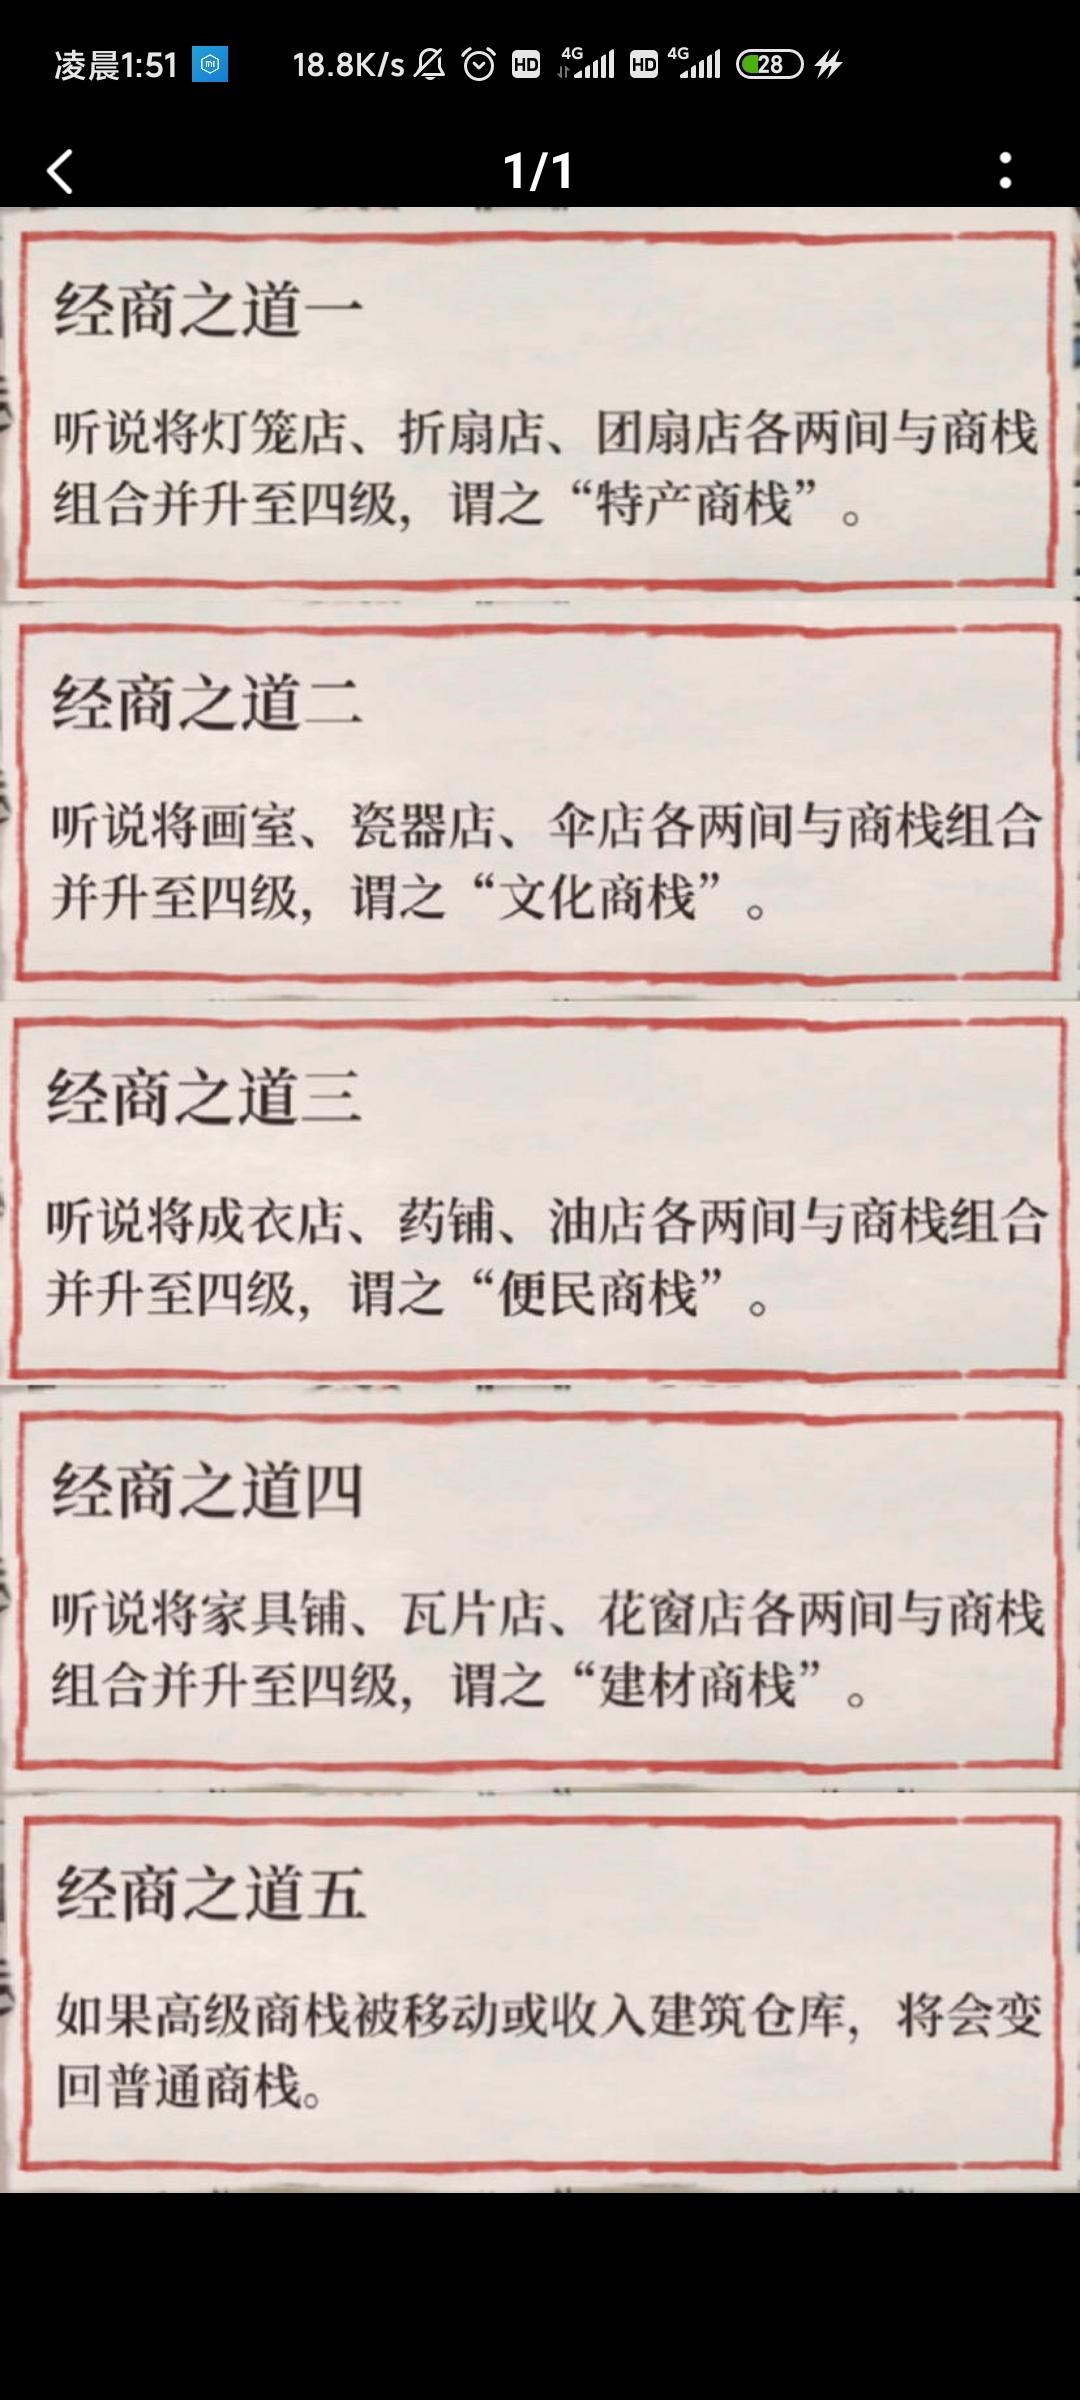 凌晨1:51 18.8K/s HD 4G HD 4G 28
1/1
经商之道一
听说将灯笼店、折扇店、团扇店各两间与商栈
组合并升至四级，谓之“特产商栈”。
经商之道二
听说将画室、瓷器店、伞店各两间与商栈组合
并升至四级，谓之“文化商栈”。
经商之道三
听说将成衣店、药铺、油店各两间与商栈组合
并升至四级，谓之“便民商栈”。
经商之道四
听说将家具铺、瓦片店、花窗店各两间与商栈
组合并升至四级，谓之“建材商栈”。
经商之道五
如果高级商栈被移动或收入建筑仓库，将会变
回普通商栈。